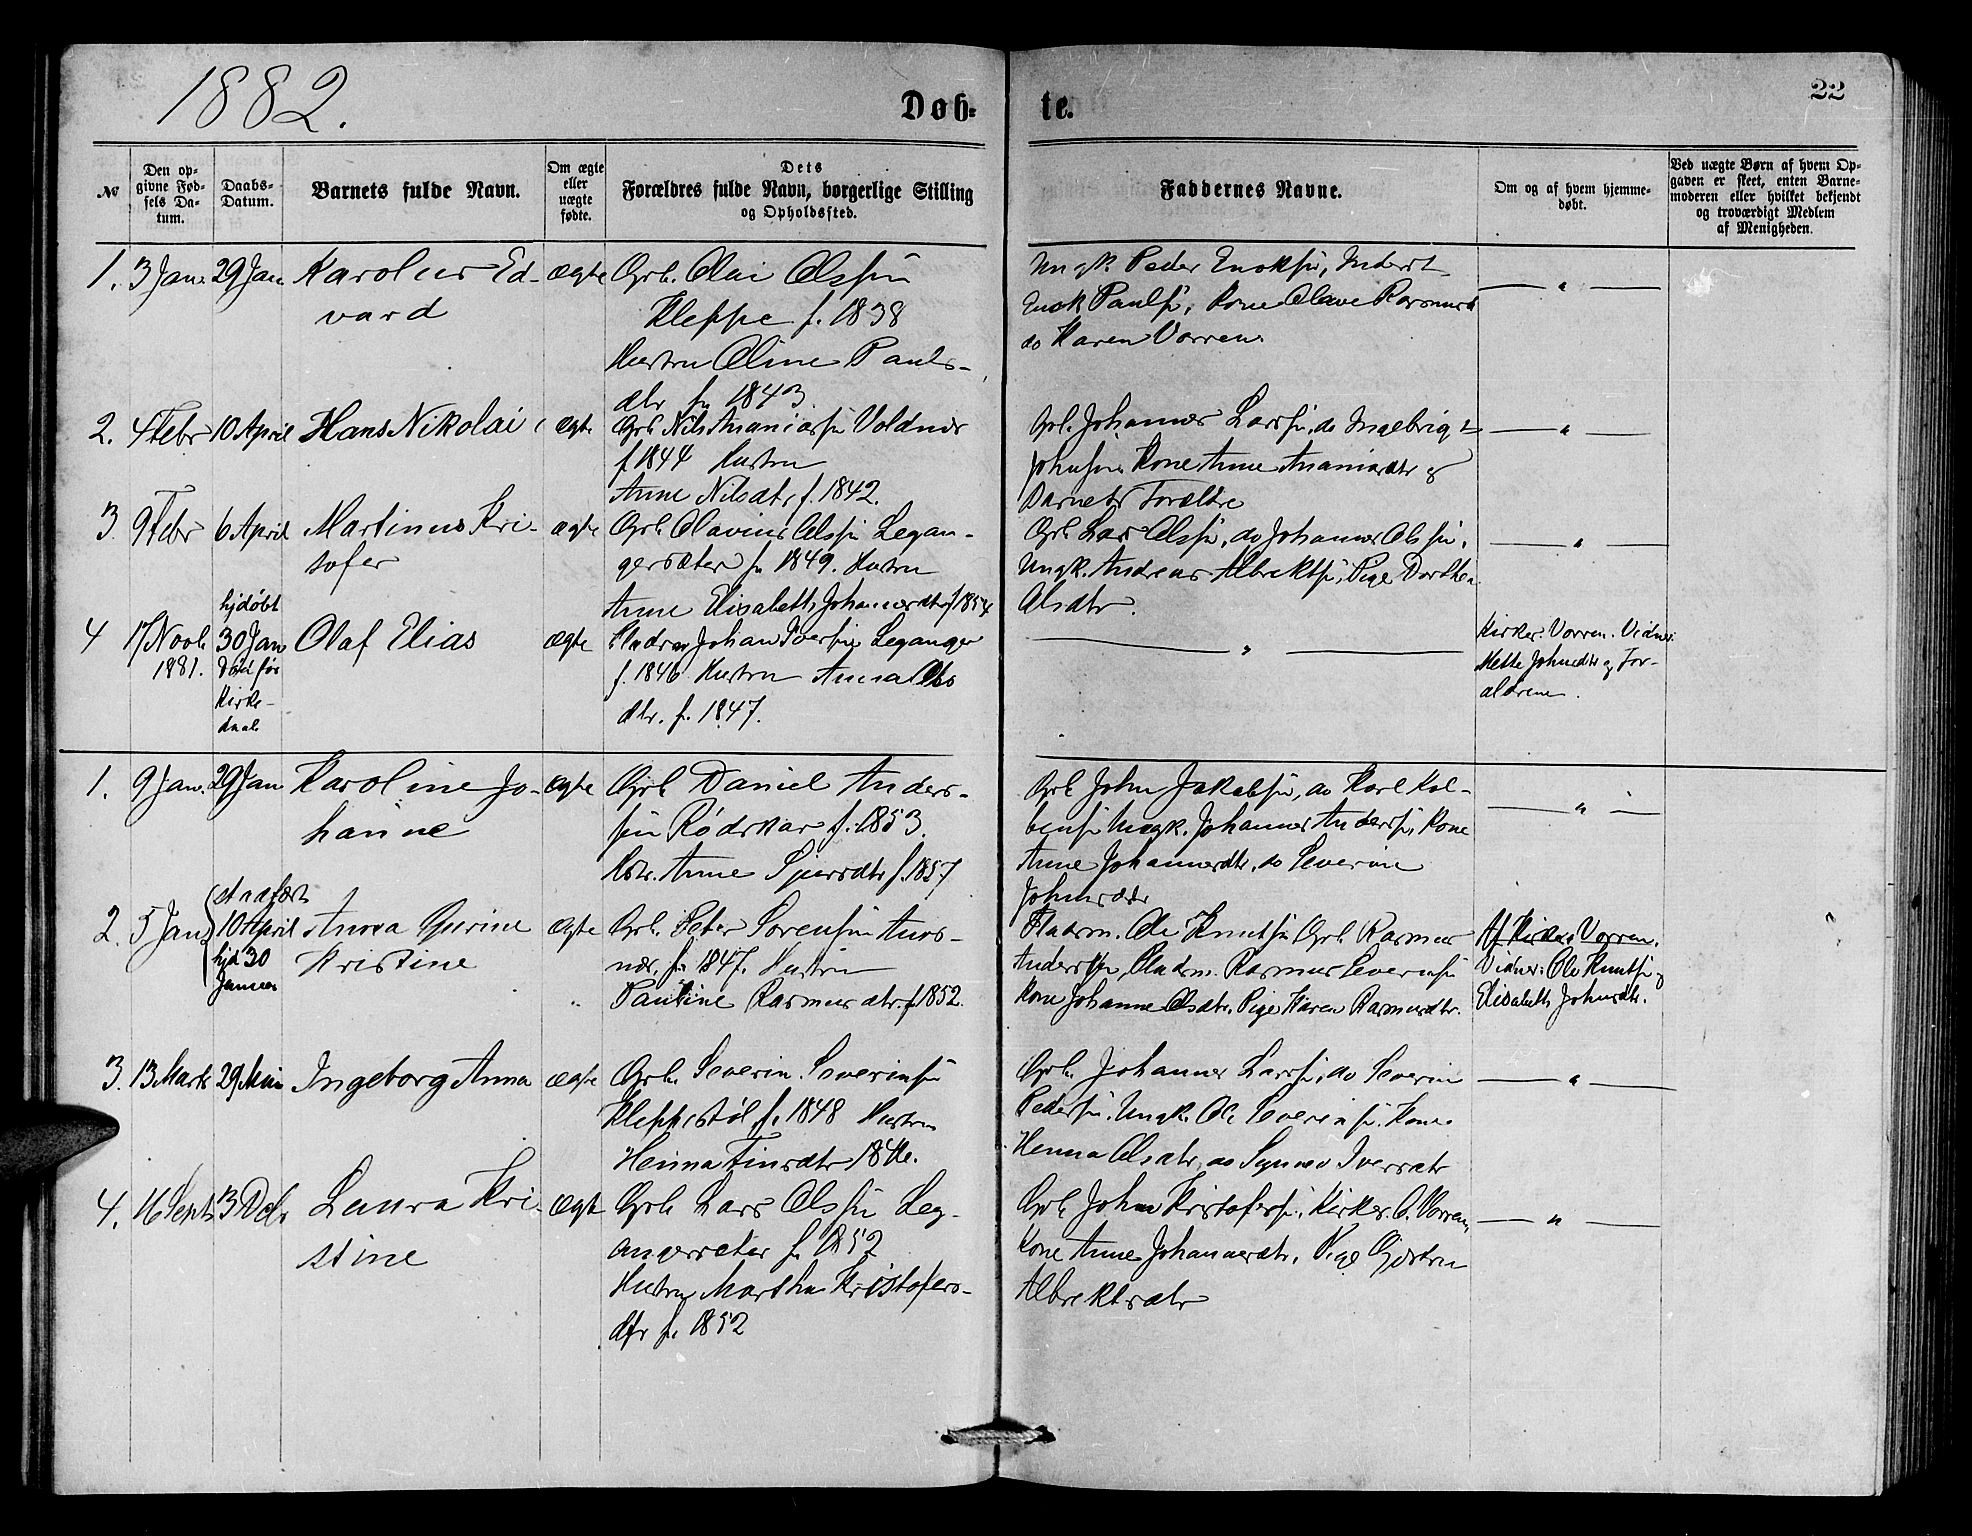 1882.
Døb-
te.
22
№
Den op-
givne Fød-
sels Da-
tum.
Daabs-
Datum.
Barnets fulde Navn.
Om ægte
eller
uægte
fødte.
Dets
Forældres fulde Navn, borgerlige Stilling
og Opholdssted.
Faddernes Navne.
Om og af hvem hjemme-
døbt.
Ved uægte Børn af hvem Op-
gaven er skeet, enten Barne-
moderen eller hvilket bekjendt
og troværdigt Medlem
af Menigheden.
1. 3 Jan. 29 Jan Karolus Ed-
vard
ægte
Grb. Olai Olssøn
Kleppe f. 1838
Hustru Oline Pauls-
dtr f. 1843
Ungk. Peder Enoksøn, Inderst
Enok Paulsøn, Kone Olave Rasmusd
do Karen Vorren
— " —
2. 4 Febr 10 April Hans Nikolai
ægte
Grb Nils Ananiassøn Voldnes
f 1844 Hustru
Anne Nilsdtr f. 1842.
Grb. Johannes Larssøn, do Ingebrigt
Johnsøn Kone Anne Ananiasdtr og
Barnets Forældre
— " —
3. 9 Febr 6 April Martinus Kri-
stofer
ægte
Grb Olavius Olssøn Legan-
gersæter f. 1849. Hustru
Anne Elisabeth Johannesdtr f 1854
Grb Lars Olssøn, do Johannes Olssøn,
Ungk. Andreas Albrektsøn, Pige Dorthea
Olsdtr.
— " —
4 17 Novb 1881.
hjdøbt
30 Jan
Død før
Kirke-
daab
Olaf Elias
ægte
Pladsm Johan Iversøn Leganger
f. 1846 Hustru Anna Ols
dtr. f. 1847.
— " —
Kirkes. Vorren. Vidner
Mette Johnsdtr og For-
ældrene.
1. 9 Jan. 29 Jan Karoline Jo-
hanne
ægte
Grb Daniel Anders-
søn Rødskar f. 1853.
Hstr. Anne Sjursdtr f. 1857
Grb John Jakobsøn, do Karl Kol-
bensøn Ungk. Johannes Anderssøn, Kone
Anne Johannesdtr, do Severine
Johnsdtr
— " —
2. 5 Jan
stadfæst
10 April
hjd 30
Januar
Anna Gurine
Kristine
ægte
Grb. Peter Sørensøn
f. 1847. Hustru
Pauline Rasmusdtr. f 1852.
Pladsm. Ole Knutsøn Grb. Rasmus
Anderssøn, Pladsm. Rasmus Severinsøn
Kone Johanne Olsdtr. Pige Karen Rasmusdtr.
Af Kirkes. Vorren.
Vidner: Ole Knutsøn og
Elisabeth Johnsdtr.
3. 13 Marts 29 Mai Ingeborg Anna
ægte
Grb. Severin Severinsøn
Kleppestøl f. 1848 Hustru
Henna Finsdtr
Grb. Johannes Larssøn, do Severin
Pedersøn. Ungk. Ole Severinsøn. Kone
Henna Olsdtr, do Synnev Iversdtr
— " —
4. 16 Sept 3 Dcbr Laura Kri-
stine
ægte
Grb Lars Olssøn Leg-
angersæter f. 1852
Hustru Martha Kristofers-
dtr f. 1852
Grb John Kristofersøn, Kirkes. O. Vorren,
Kone Anne Johannesdtr, Pige Gjertru
Albrektsdtr
— " —